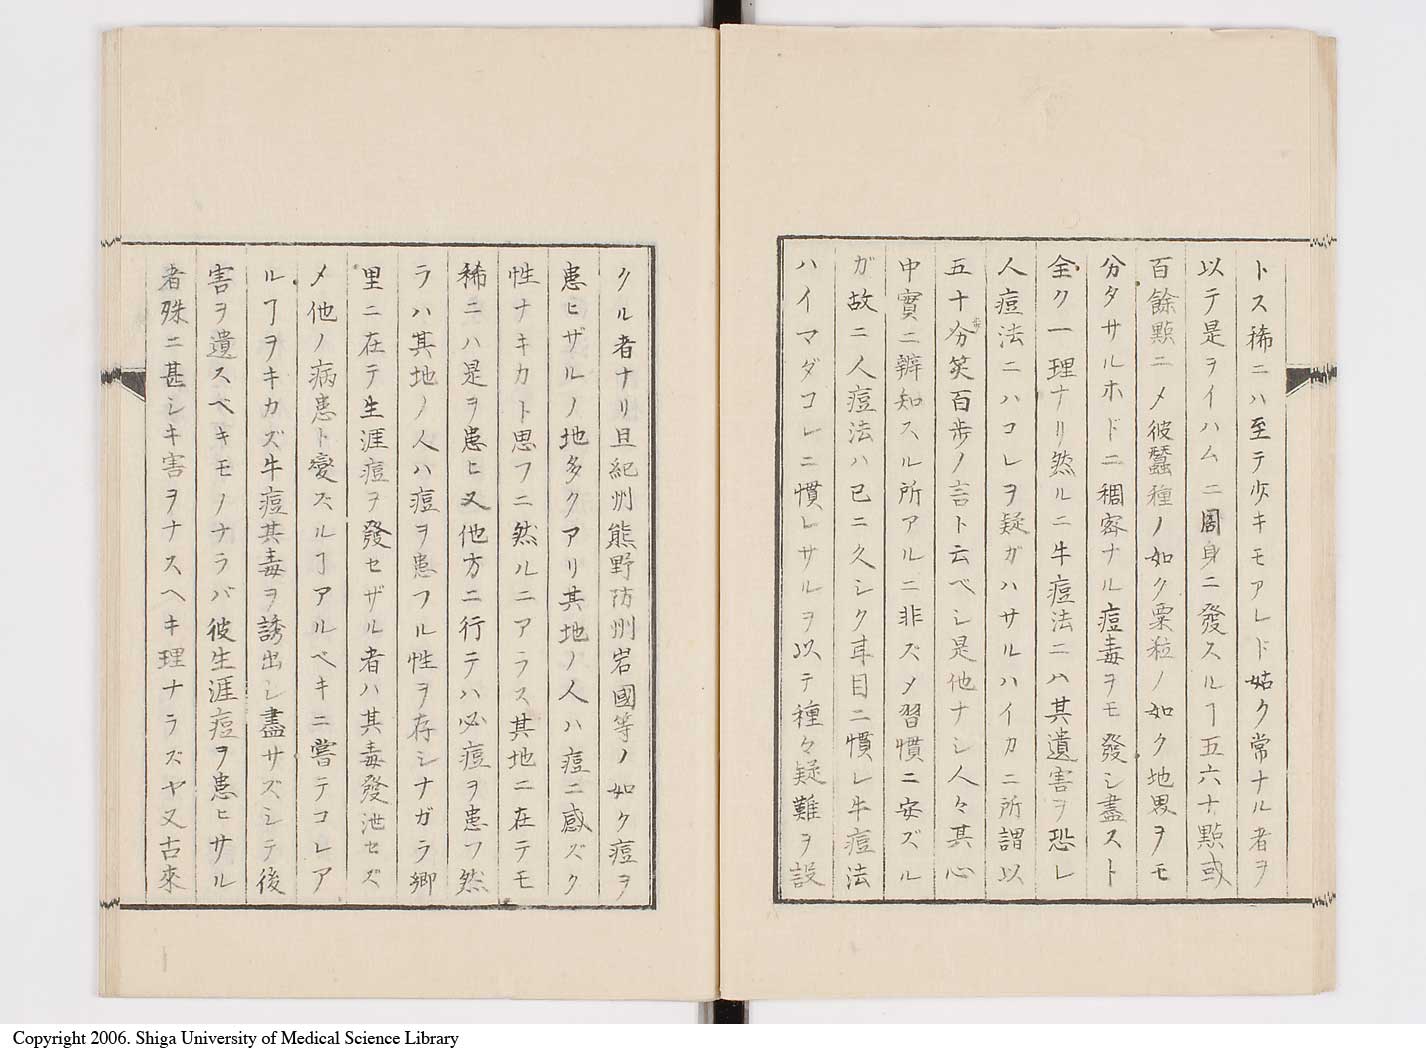 トス稀ニハ至テ少キモアレド姑ク常ナル者ヲ
以テ是ヲイハムニ周身ニ發スルヿ五六十點或
百餘點ニ〆彼蠶種ノ如ク粟粒ノ如ク地界ヲモ
分タサルホドニ稠密ナル痘毒ヲモ發シ盡スト
全ク一理ナリ然ルニ牛痘法ニハ其遺害ヲ恐レ
人痘法ニハコレヲ疑ガハサルハイカニ所謂以
五十分笑百歩ノ言ト云ベシ是他ナシ人々其心
中實ニ辨知スル所アルニ非ズ〆習慣ニ安ズル
ガ故ニ人痘法ハ已ニ久シク耳目ニ慣レ牛痘法
ハイマダコレニ慣レサルヲ以テ種々疑難ヲ設
クル者ナリ且紀州熊野防州岩國等ノ如ク痘ヲ
患ヒザルノ地多クアリ其地ノ人ハ痘ニ感ズク
性ナキカト思フニ然ルニアラス其地ニ在テモ
稀ニハ是ヲ患ヒ又他方ニ行テハ必痘ヲ患フ然
ラハ其地ノ人ハ痘ヲ患フル性ヲ存シナガラ郷
里ニ在テ生涯痘ヲ發セザル者ハ其毒發泄セズ
〆他ノ病患ト變ズルヿアルベキニ嘗テコレア
ルヿヲキカズ牛痘其毒ヲ誘出シ盡サズシテ後
害ヲ遺スベキモノナラバ彼生涯痘ヲ患ヒサル
者殊ニ甚シキ害ヲナスヘキ理ナラズヤ又古來
Copyright 2006. Shiga University of Medical Science Library